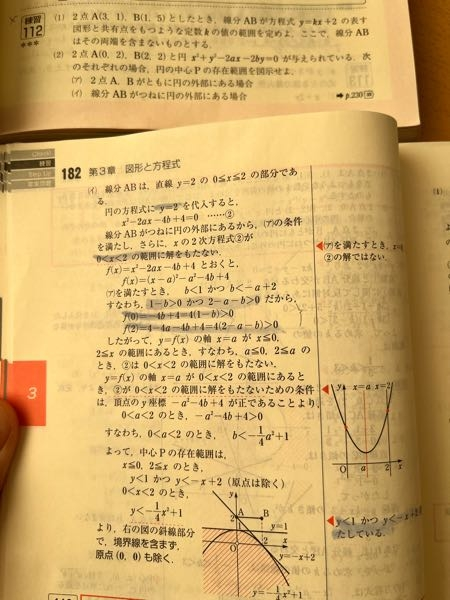 練習
112
***
(1) 2点A(3, 1), B(1, 5)としたとき, 線分ABが方程式 y=kx+2 の表す
図形と共有点をもつような定数kの値の範囲を定めよ. ここで, 線分AB
はその両端を含まないものとする.
(2) 2点A(0, 2), B(2, 2)と円 x²+y²−2ax−2by=0 が与えられている. 次
のそれぞれの場合, 円の中心Pの存在範囲を図示せよ.
(ア) 2点A, Bがともに円の外部にある場合
(イ) 線分ABがつねに円の外部にある場合
➡p.230
Check
練習
Step Up
章末問題
182 第3章 図形と方程式
(イ) 線分ABは, 直線 y=2 の 0≦x≦2 の部分であ
る.
円の方程式に y=2 を代入すると,
x²−2ax−4b+4=0 ……②
線分ABがつねに円の外部にあるから, (ア)の条件
を満たし, さらに, xの2次方程式②が
0<x<2 の範囲に解をもたない.
f(x)=x²−2ax−4b+4 とおくと,
f(x)=(x−a)²−a²−4b+4
(ア)を満たすとき, b<1 かつ b<−a+2
すなわち, 1−b>0 かつ 2−a−b>0 だから,
f(0)=−4b+4=4(1−b)>0
f(2)=4−4a−4b+4=4(2−a−b)>0
したがって, y=f(x) の軸 x=a が x≦0,
2≦x の範囲にあるとき, すなわち, a≦0, 2≦a の
とき, ②は 0<x<2 の範囲に解をもたない.
y=f(x) の軸 x=a が 0<x<2 の範囲にあると
き, ②が 0<x<2 の範囲に解をもたないための条件
は, 頂点のy座標 −a²−4b+4 が正であることより,
0<a<2 のとき, −a²−4b+4>0
すなわち, 0<a<2 のとき, b<−1/4a²+1
よって, 中心Pの存在範囲は,
x≦0, 2≦x のとき,
y<1 かつ y<−x+2 (原点は除く)
0<x<2 のとき,
y<−1/4x²+1
より, 右の図の斜線部分
で, 境界線を含まず,
原点 (0, 0) も除く.
(ア)を満たすとき,
②の解ではない.
3
x=a
x=2
y
O
a
2
x
y<1 かつ y<−x+2
たしている.
y
2
A
B
y=1
O
2
x
y=−x+2
y=−1/4x²+1